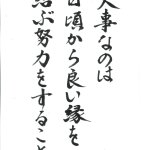 大事なのは
日頃から良い縁を
結ぶ努力をすること